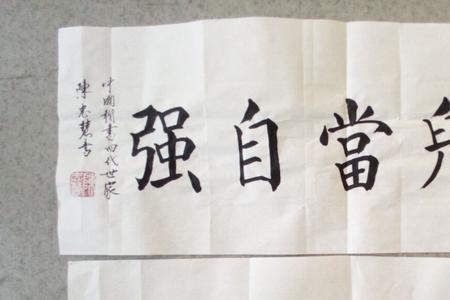 當自强
中國楷書四代世家
陳忠慧書